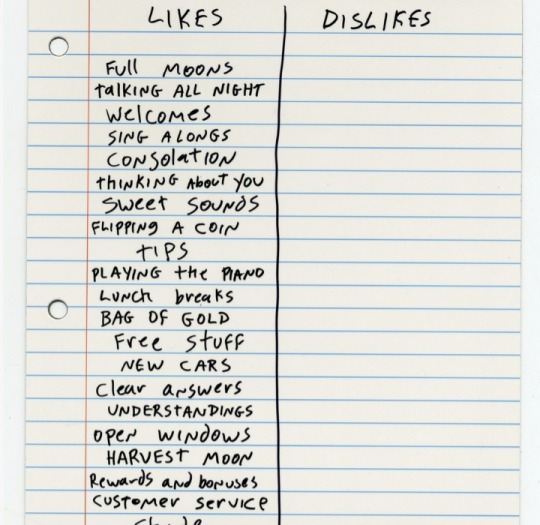 LIKES DISLIKES
Full MOONS
tALKING ALL NIGHT
Welcomes
SING ALONGS
CONSOLATION
tHINKING About YOU
SWEET SOUNDS
FLIPPING A COIN
TIPS
PLAYING the PIANO
LUNCH breaks
BAG OF GOLD
Free Stuff
NEW CARS
Clear answers
UNDERSTANDINGS
OPEN WINDOWS
HARVEST MOON
Rewards and bonuses
CUSTOMER SERVICE